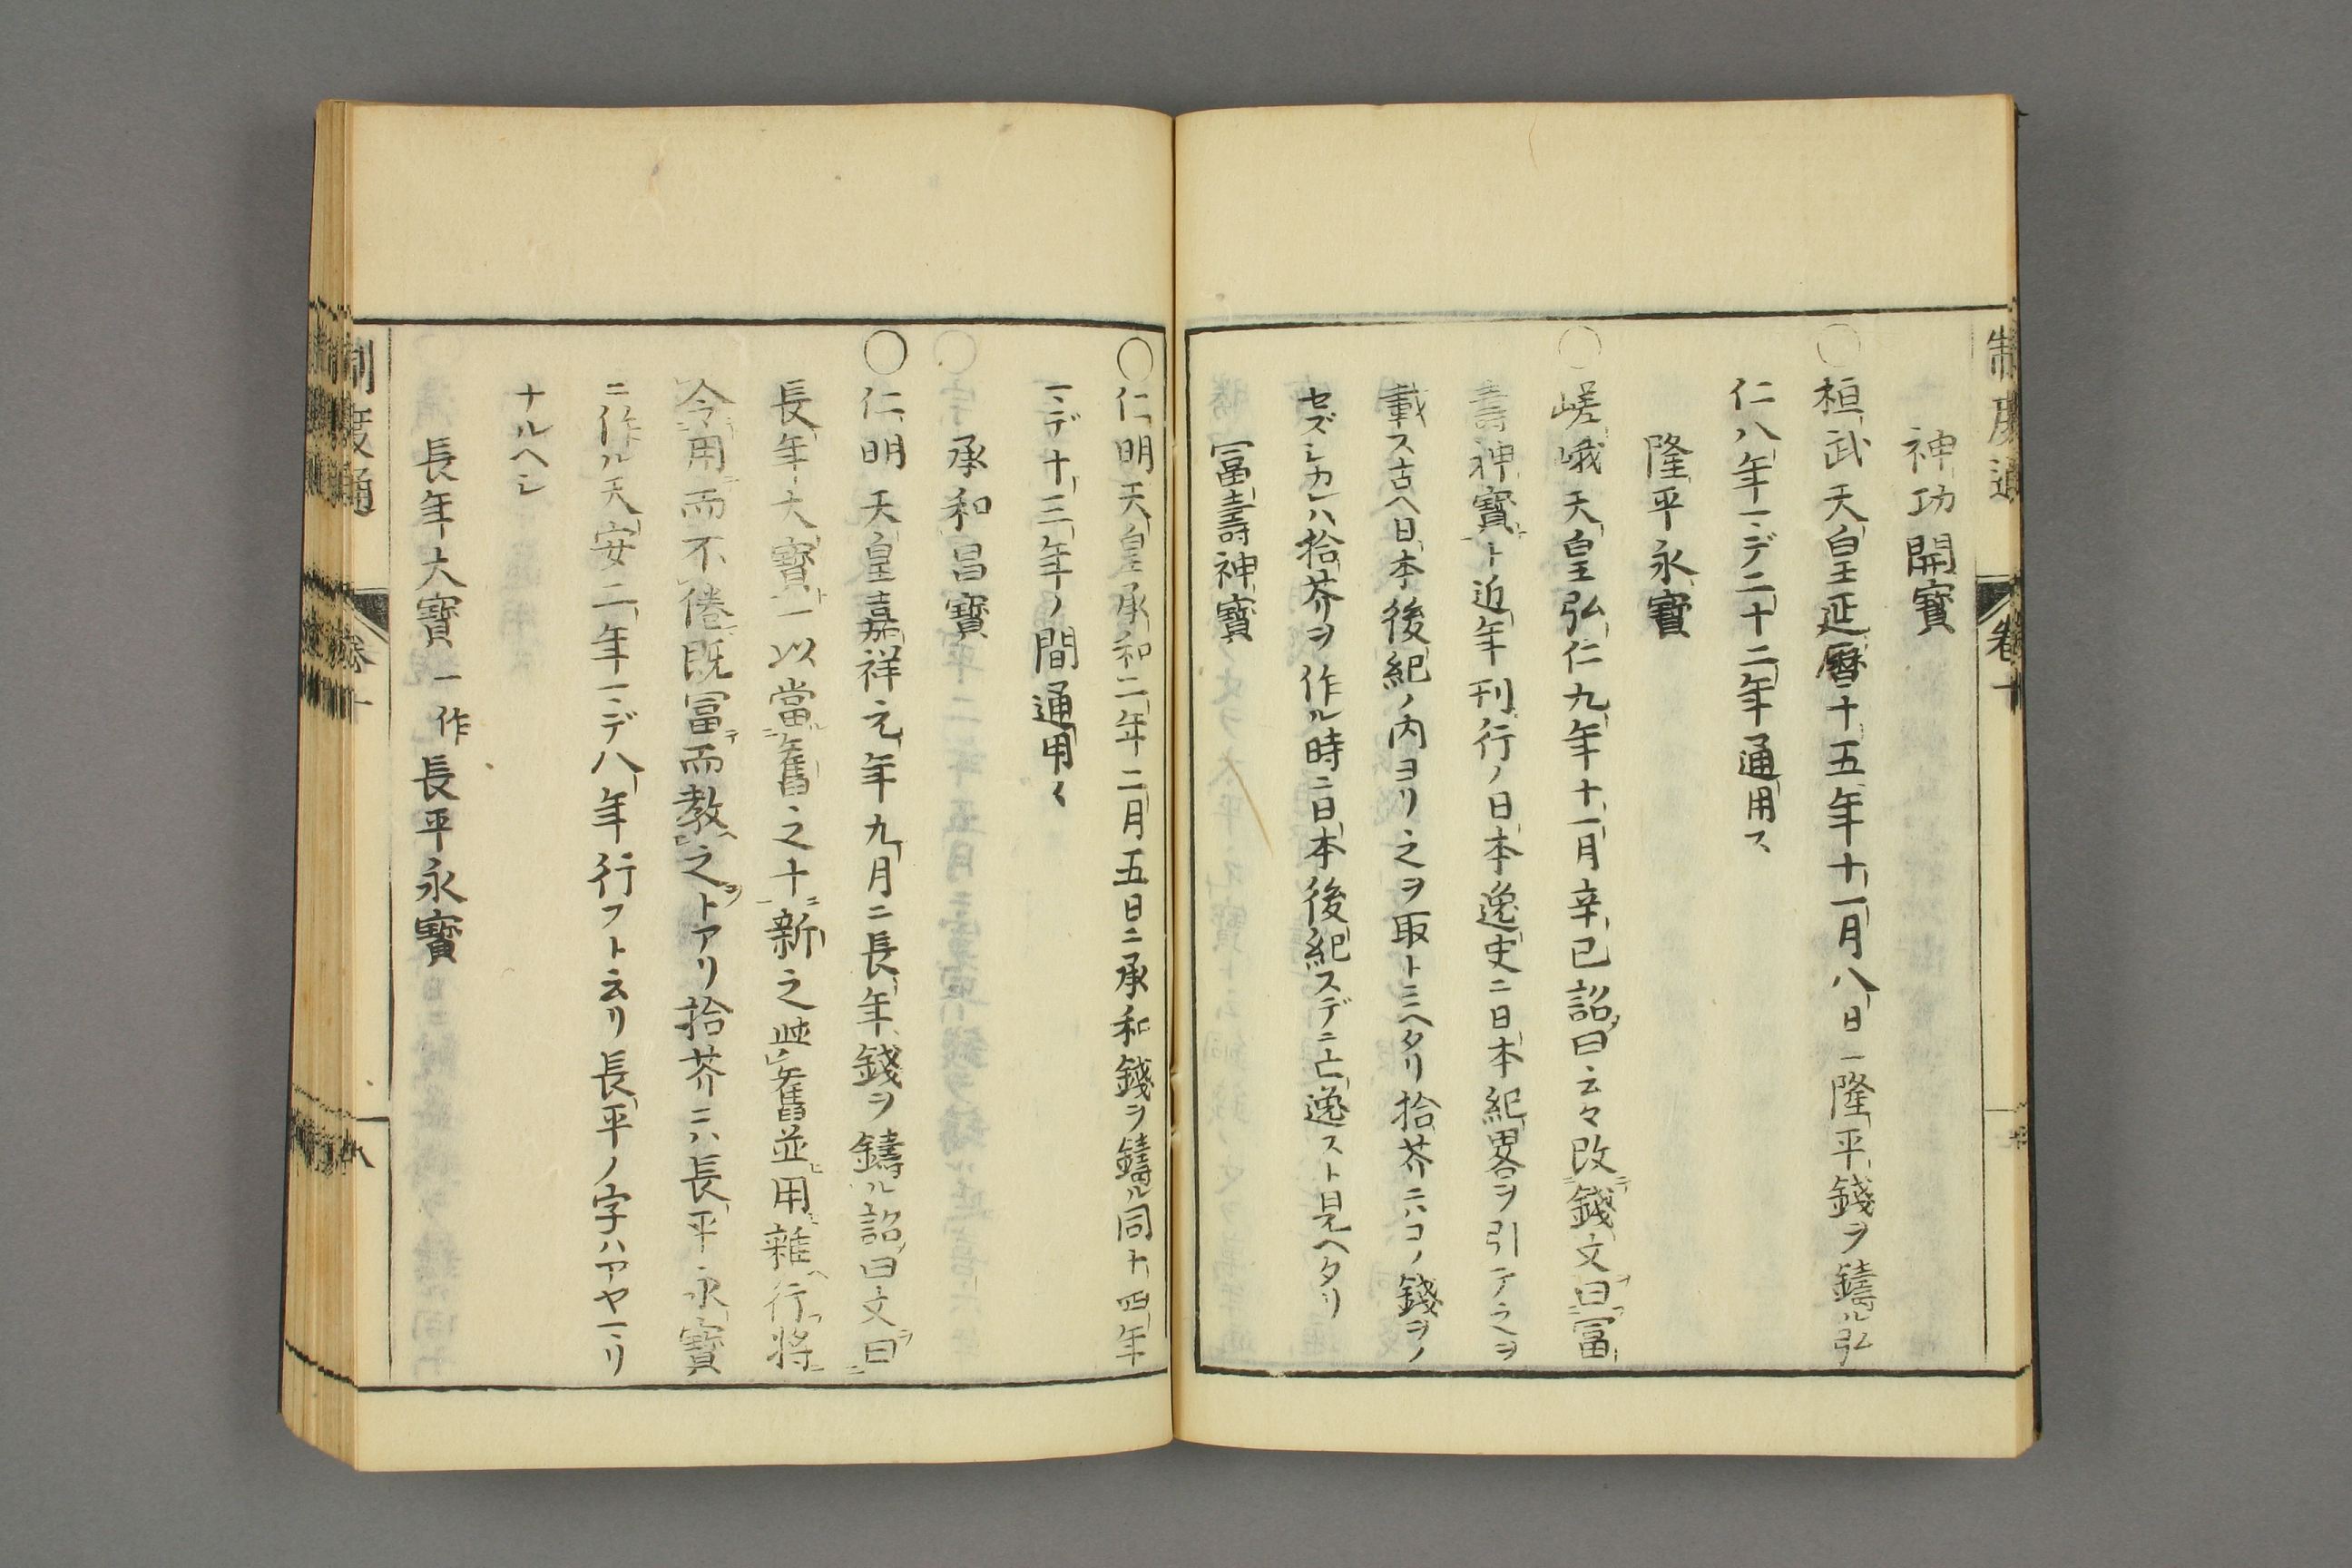 制度通 卷十
神功開寳
〇桓武天皇延曆十五年十一月八日ー隆平錢ヲ鑄ル弘
仁八年マデ二十二年通用ス
隆平永寳
〇嵯峨天皇弘仁九年十一月辛巳詔曰云々改錢文曰冨
壽神寳ト近年刊行ノ日本逸史ニ日本紀畧ヲ引テコヽヲ
載ス古ヘ日本後紀ノ内ヨリ之ヲ取トミヘタリ拾芥ニハコノ錢ヲノ
セズシカレハ拾芥ヲ作ル時ニ日本後紀スデニ亡逸スト見ヘタリ
冨壽神寳
〇仁明天皇承和二年二月五日ニ承和錢ヲ鑄ル同十四年
マデ十三年ノ間通用ス
承和昌寳
〇仁明天皇嘉祥元年九月ニ長年錢ヲ鑄ル詔曰文曰
長年大寳一以當舊之十新之與舊並用雜行將
令用而不倦既冨而教之トアリ拾芥ニハ長平永寳
ニ作ル天安二年マデ八年行フト云リ長平ノ字ハアヤマリ
ナルヘシ
長年大寳 一作長平永寳
制度通 卷十 八